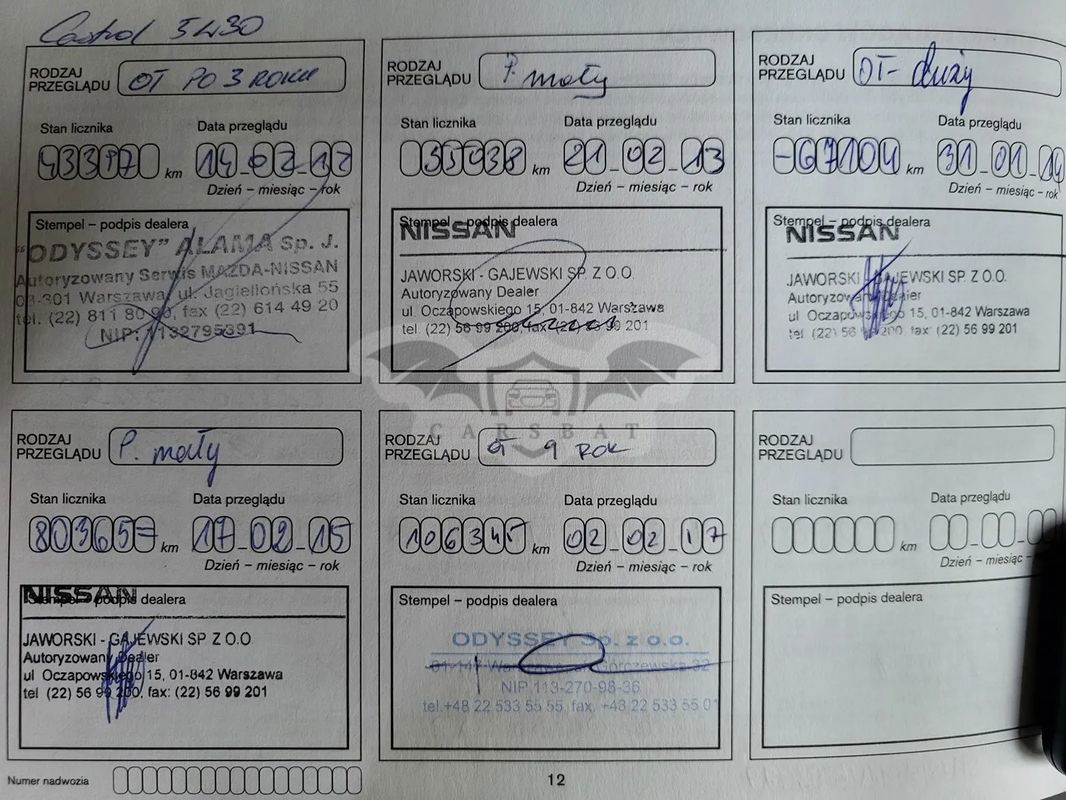 Castrol 5W30
RODZAJ PRZEGLĄDU OT PO 3 ROKU
Stan licznika Data przeglądu
km 14-02-12
Dzień – miesiąc – rok
Stempel – podpis dealera
"ODYSSEY" ALAMA Sp. J.
Autoryzowany Serwis MAZDA-NISSAN
03-301 Warszawa, ul. Jagiellońska 55
tel. (22) 811 80 90, fax (22) 614 49 20
NIP: 1132795391
RODZAJ PRZEGLĄDU P. mały
Stan licznika Data przeglądu
35038 km 21-02-13
Dzień – miesiąc – rok
Stempel – podpis dealera
NISSAN
JAWORSKI - GAJEWSKI SP. Z O.O.
Autoryzowany Dealer
ul. Oczapowskiego 15, 01-842 Warszawa
tel. (22) 56 99 200, fax: 99 201
RODZAJ PRZEGLĄDU OT- duży
Stan licznika Data przeglądu
-67104 km 31-01-14
Dzień – miesiąc – rok
Stempel – podpis dealera
NISSAN
JAWORSKI GAJEWSKI SP. Z O.O.
Autoryzowany Dealer
ul Oczapowskiego 15, 01-842 Warszawa
tel. (22) 56 99 200 fax: (22) 56 99 201
CARSBAT
RODZAJ PRZEGLĄDU P. mały
Stan licznika Data przeglądu
80365= km 17-02-15
Dzień – miesiąc – rok
Stempel – podpis dealera
NISSAN
JAWORSKI - GAJEWSKI SP Z O.O
Autoryzowany Dealer
ul Oczapowskiego 15, 01-842 Warszawa
tel (22) 56 99 200, fax: (22) 56 99 201
RODZAJ PRZEGLĄDU OT 9 ROK
Stan licznika Data przeglądu
106345 km 02-02-17
Dzień – miesiąc – rok
Stempel – podpis dealera
ODYSSEY Sp. z o.o.
Górczewska 32
NIP 113-270-98-36
tel.+48 22 533 55 55, fax. +48 22 533 55 01
RODZAJ PRZEGLĄDU
Stan licznika Data przeglądu
km
Dzień – miesiąc – rok
Stempel – podpis dealera
Numer nadwozia
12